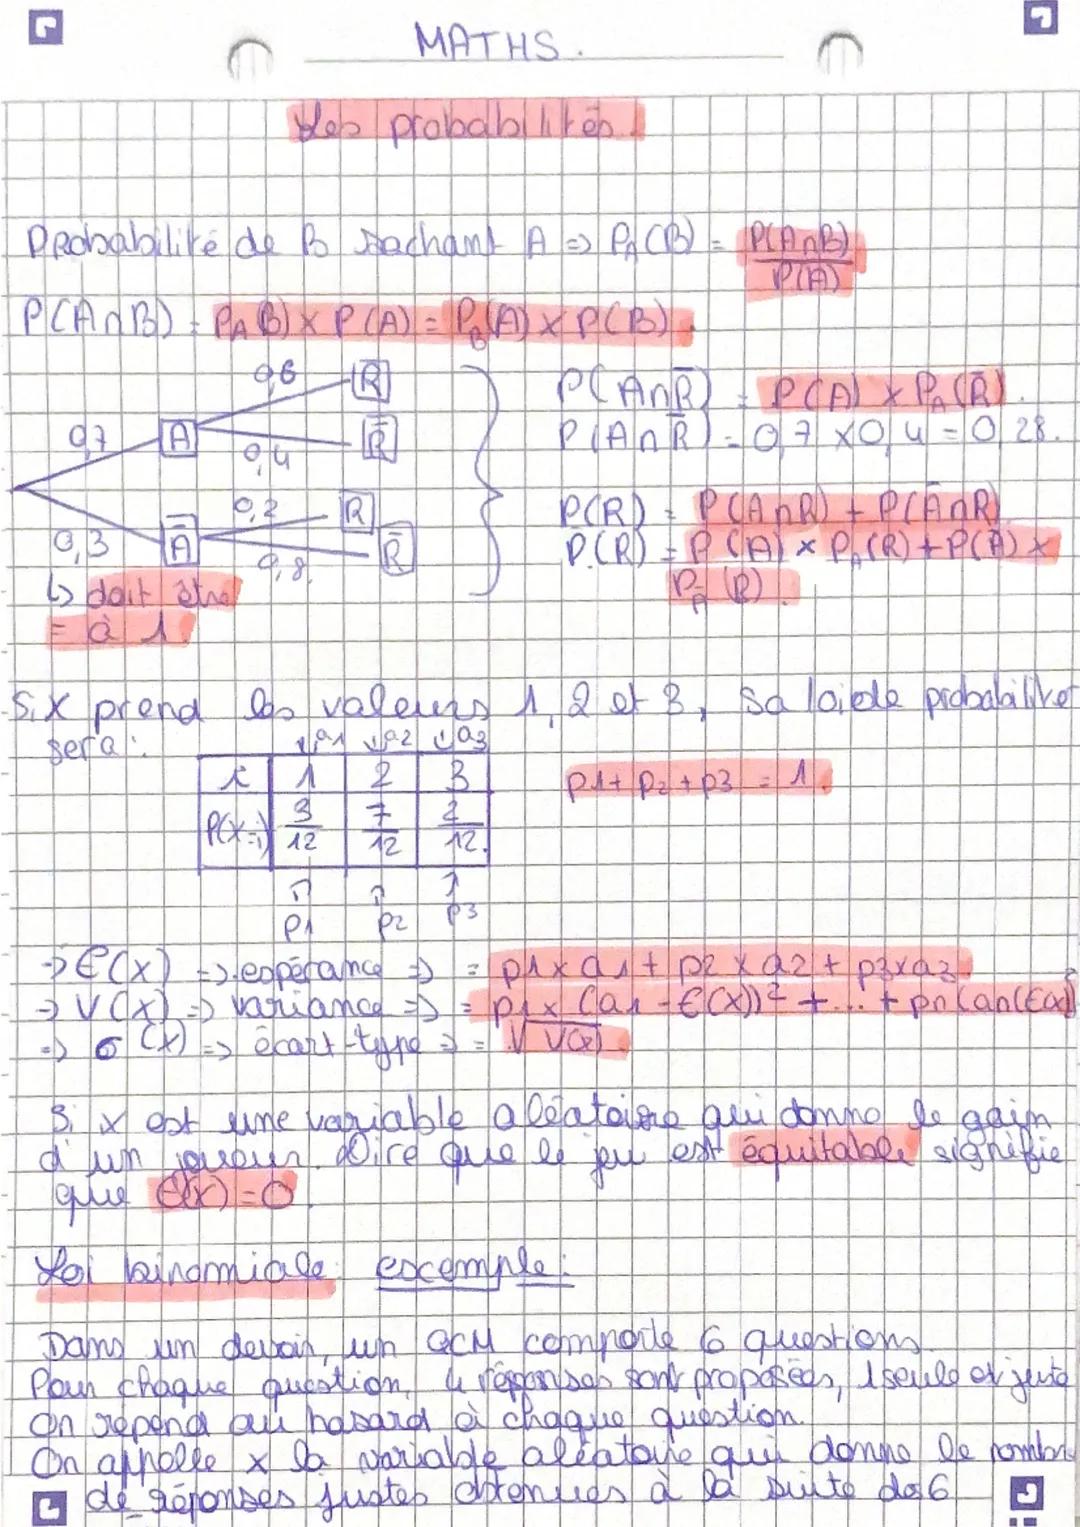 MATHS.
Les probabilités.
Probabilité de B sachant A => P_A(B) = P(A∩B)/P(A)
P(A∩B) = P_A(B) × P(A) = P_B(A) × P(B).
0,7 A 0,6 R
0,4 R̄
0,3 Ā 0,2 R
0,8 R̄
↳ doit être
= à 1.
P(A∩R̄) = P(A) × P_A(R̄).
P(A∩R̄) = 0,7 × 0,4 = 0,28.
P(R) = P(A∩R) + P(Ā∩R)
P(R) = P(A) × P_A(R) + P(Ā) ×
P_Ā(R).
Si X prend les valeurs 1, 2 et 3, sa loi de probabilité
sera :
↓a1 ↓a2 ↓a3
i 1 2 3
P(X=i) 3/12 7/12 2/12.
↑ ↑ ↑
p1 p2 p3
p1 + p2 + p3 = 1.
→ E(X) => espérance => = p1 × a1 + p2 × a2 + p3 × a3.
→ V(X) => variance => = p1 × (a1 - E(X))² + ... + pn(an(E(x))²
=> σ(X) => écart-type => = √V(x).
Si x est une variable aléatoire qui donne le gain
d'un joueur. Dire que le jeu est équitable signifie
que E(x) = 0.
Loi binomiale : excemple :
Dans un devoir, un QCM comporte 6 questions.
Pour chaque question, 4 réponses sont proposées, 1 seule est juste
On répond au hasard à chaque question.
On appelle x la variable aléatoire qui donne le nombre
de réponses justes obtenues à la suite des 6